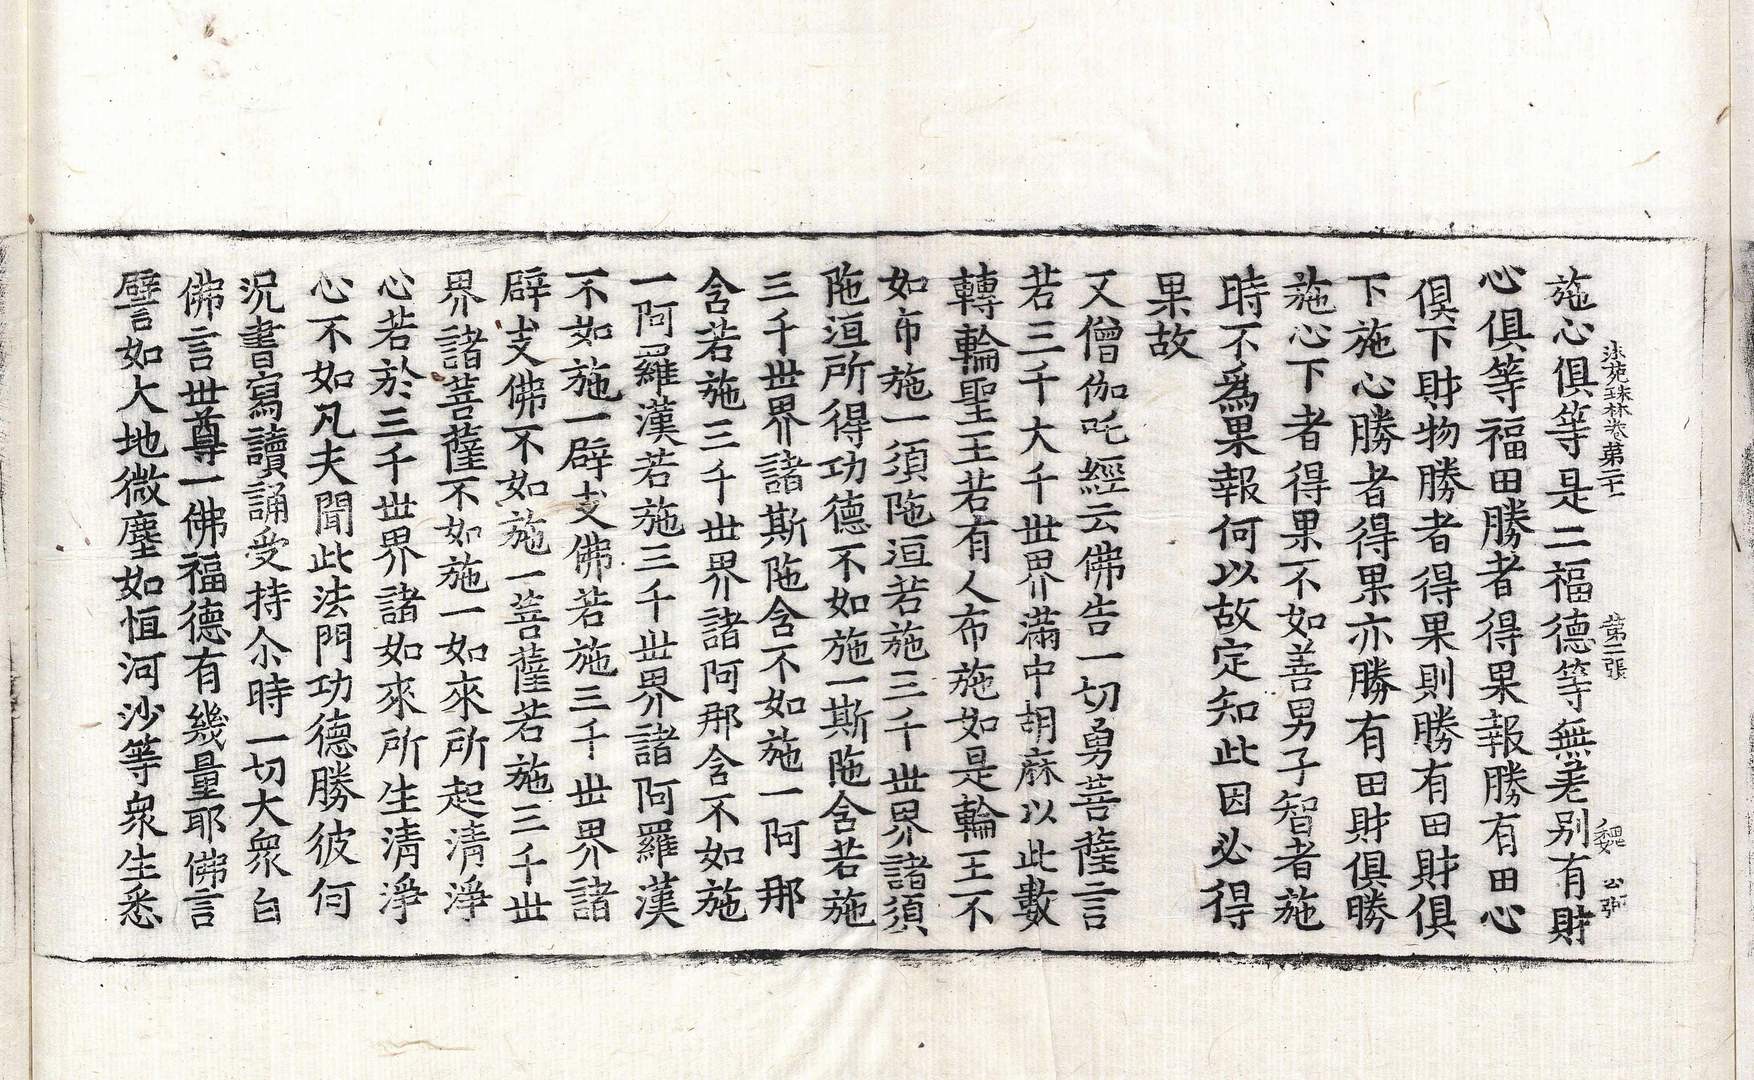 法苑珠林卷第二十一 第二張 魏 公弼
施心俱等是二福德等無差别有財
心俱等福田勝者得果報勝有田心
俱下財物勝者得果則勝有田財俱
下施心勝者得果亦勝有田財俱勝
施心下者得果不如善男子智者施
時不爲果報何以故定知此因必得
果故
又僧伽吒經云佛告一切勇菩薩言
若三千大千世界滿中胡麻以此數
轉輪聖王若有人布施如是輪王不
如布施一須陁洹若施三千世界諸須
陁洹所得功德不如施一斯陁含若施
三千世界諸斯陁含不如施一阿那
含若施三千世界諸阿那含不如施
一阿羅漢若施三千世界諸阿羅漢
不如施一辟支佛若施三千世界諸
辟支佛不如施一菩薩若施三千世
界諸菩薩不如施一如來所起清淨
心若於三千世界諸如來所生清淨
心不如凡夫聞此法門功德勝彼何
況書寫讀誦受持尒時一切大衆白
佛言世尊一佛福德有幾量耶佛言
譬如大地微塵如恒河沙等衆生悉